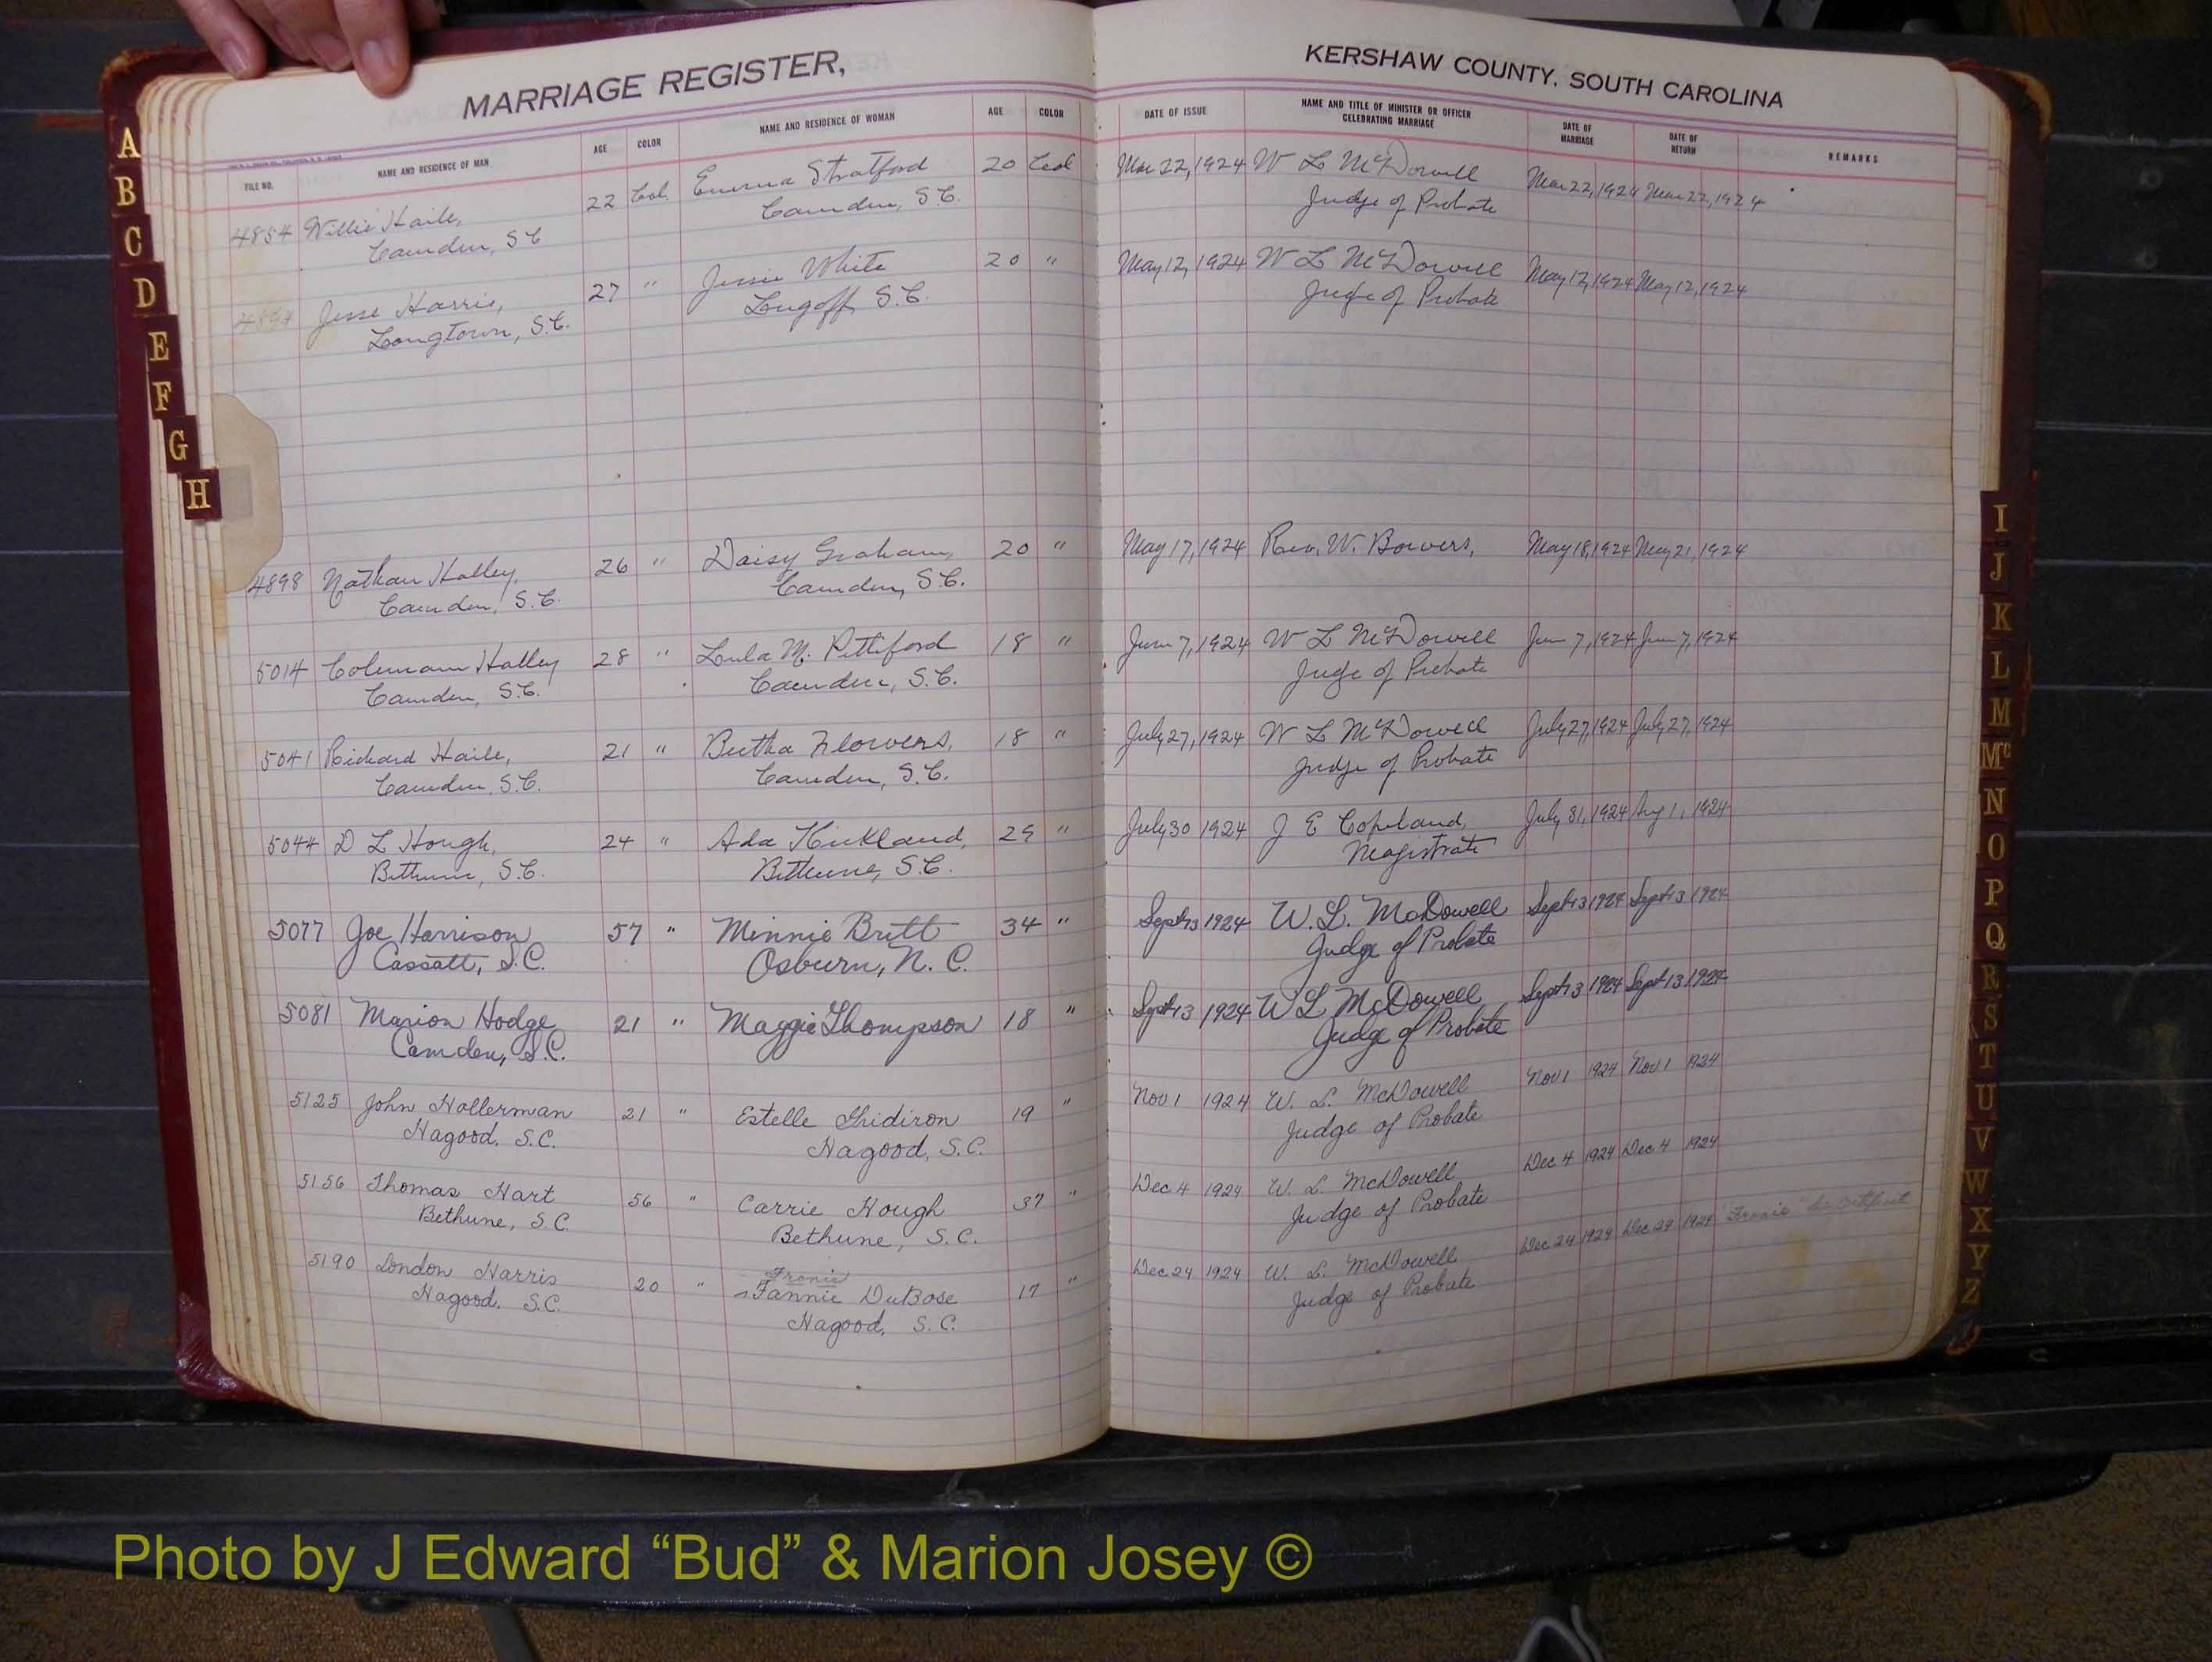 MARRIAGE REGISTER,
FILE NO. NAME AND RESIDENCE OF MAN AGE COLOR NAME AND RESIDENCE OF WOMAN AGE COLOR
4854 Willie Haile, 22 Col. Emma Stratford 20 Col
Camden, S C Camden, S C.
4894 Jesse Harris, 27 " Jessie White 20 "
Longtown, S.C. Lugoff, S.C.
4898 Nathan Halley, 26 " Daisy Graham, 20 "
Camden, S.C. Camden, S.C.
5014 Coleman Halley 28 " Lula M. Pettiford 18 "
Camden, S.C. Camden, S.C.
5041 Richard Haile, 21 " Bertha Flowers, 18 "
Camden, S.C. Camden, S.C.
5044 D L Hough, 24 " Ada Kirkland, 25 "
Bethune, S.C. Bethune, S.C.
5077 Joe Harrison 57 " Minnie Britt 34 "
Cassatt, S.C. Osburn, N.C.
5081 Marion Hodge 21 " Maggie Thompson 18 "
Camden, S.C.
5125 John Hollerman 21 " Estelle Gridiron 19 "
Hagood, S.C. Hagood, S.C.
5156 Thomas Hart 56 " Carrie Hough 37 "
Bethune, S.C. Bethune, S.C.
Fronie
5190 London Harris 20 " Fannie DuBose 17 "
Hagood, S.C. Hagood, S.C.
KERSHAW COUNTY, SOUTH CAROLINA
DATE OF ISSUE NAME AND TITLE OF MINISTER OR OFFICER CELEBRATING MARRIAGE DATE OF MARRIAGE DATE OF RETURN REMARKS
Mar 22, 1924 W L McDowell Mar 22, 1924 Mar 22, 1924
Judge of Probate
May 12, 1924 W L McDowell May 12, 1924 May 12, 1924
Judge of Probate
May 17, 1924 Rev. W. Bowers, May 18, 1924 May 21, 1924
June 7, 1924 W L McDowell June 7, 1924 June 7, 1924
Judge of Probate
July 27, 1924 W L McDowell July 27, 1924 July 27, 1924
Judge of Probate
July 30 1924 J E Copeland, July 31, 1924 Aug 1, 1924
Magistrate
Sept 13 1924 W. L. McDowell Sept 13 1924 Sept 13 1924
Judge of Probate
Sept 13 1924 W L McDowell Sept 13 1924 Sept 13 1924
Judge of Probate
Nov 1 1924 W. L. McDowell Nov 1 1924 Nov 1 1924
Judge of Probate
Dec 4 1924 W. L. McDowell Dec 4 1924 Dec 4 1924
Judge of Probate
Dec 24 1924 W. L. McDowell Dec 24 1924 Dec 24 1924 "Fronie"
Judge of Probate
A
B
C
D
E
F
G
H
I
J
K
L
M
Mc
N
O
P
Q
R
S
T
U
V
W
X
Y
Z
Photo by J Edward “Bud” & Marion Josey ©